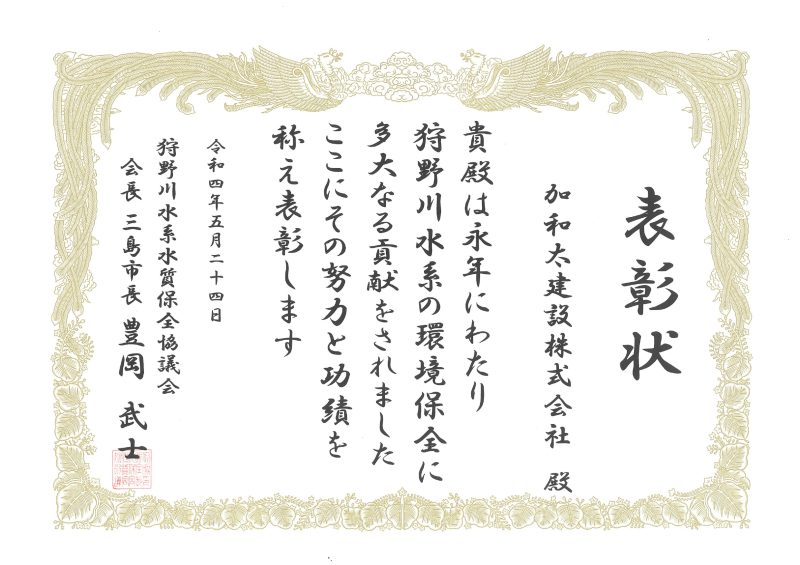 表彰状
加和太建設株式会社 殿
貴殿は永年にわたり
狩野川水系の環境保全に
多大なる貢献をされました
ここにその努力と功績を
称え表彰します
令和四年五月二十四日
狩野川水系水質保全協議会
会長 三島市長 豊岡 武士